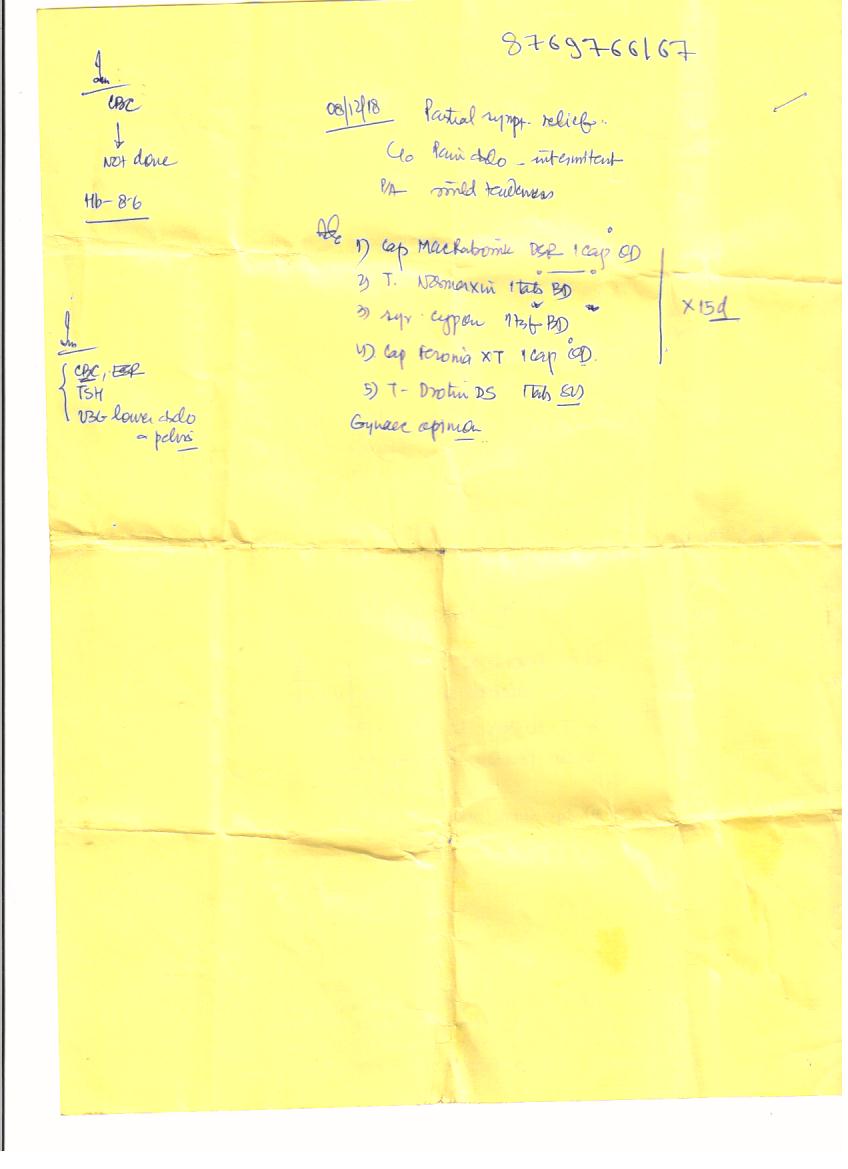 8769766167
Inv.
CBC
↓
NOT done
Hb- 8.6
08/12/18 Partial sympt. relief.
C/o Pain abdo - intermittent
P/A mild tenderness
Adv
1) Cap DSR 1 cap OD
2) T. Normaxin 1 tab BD
3) syr. cypon 1 tsf BD
4) Cap Feronia XT 1 cap OD.
5) T- Drotin DS 1 tab
x 15d
Gynaec opinion
Inv
CBC, ESR
TSH
USG lower abdo
& pelvis